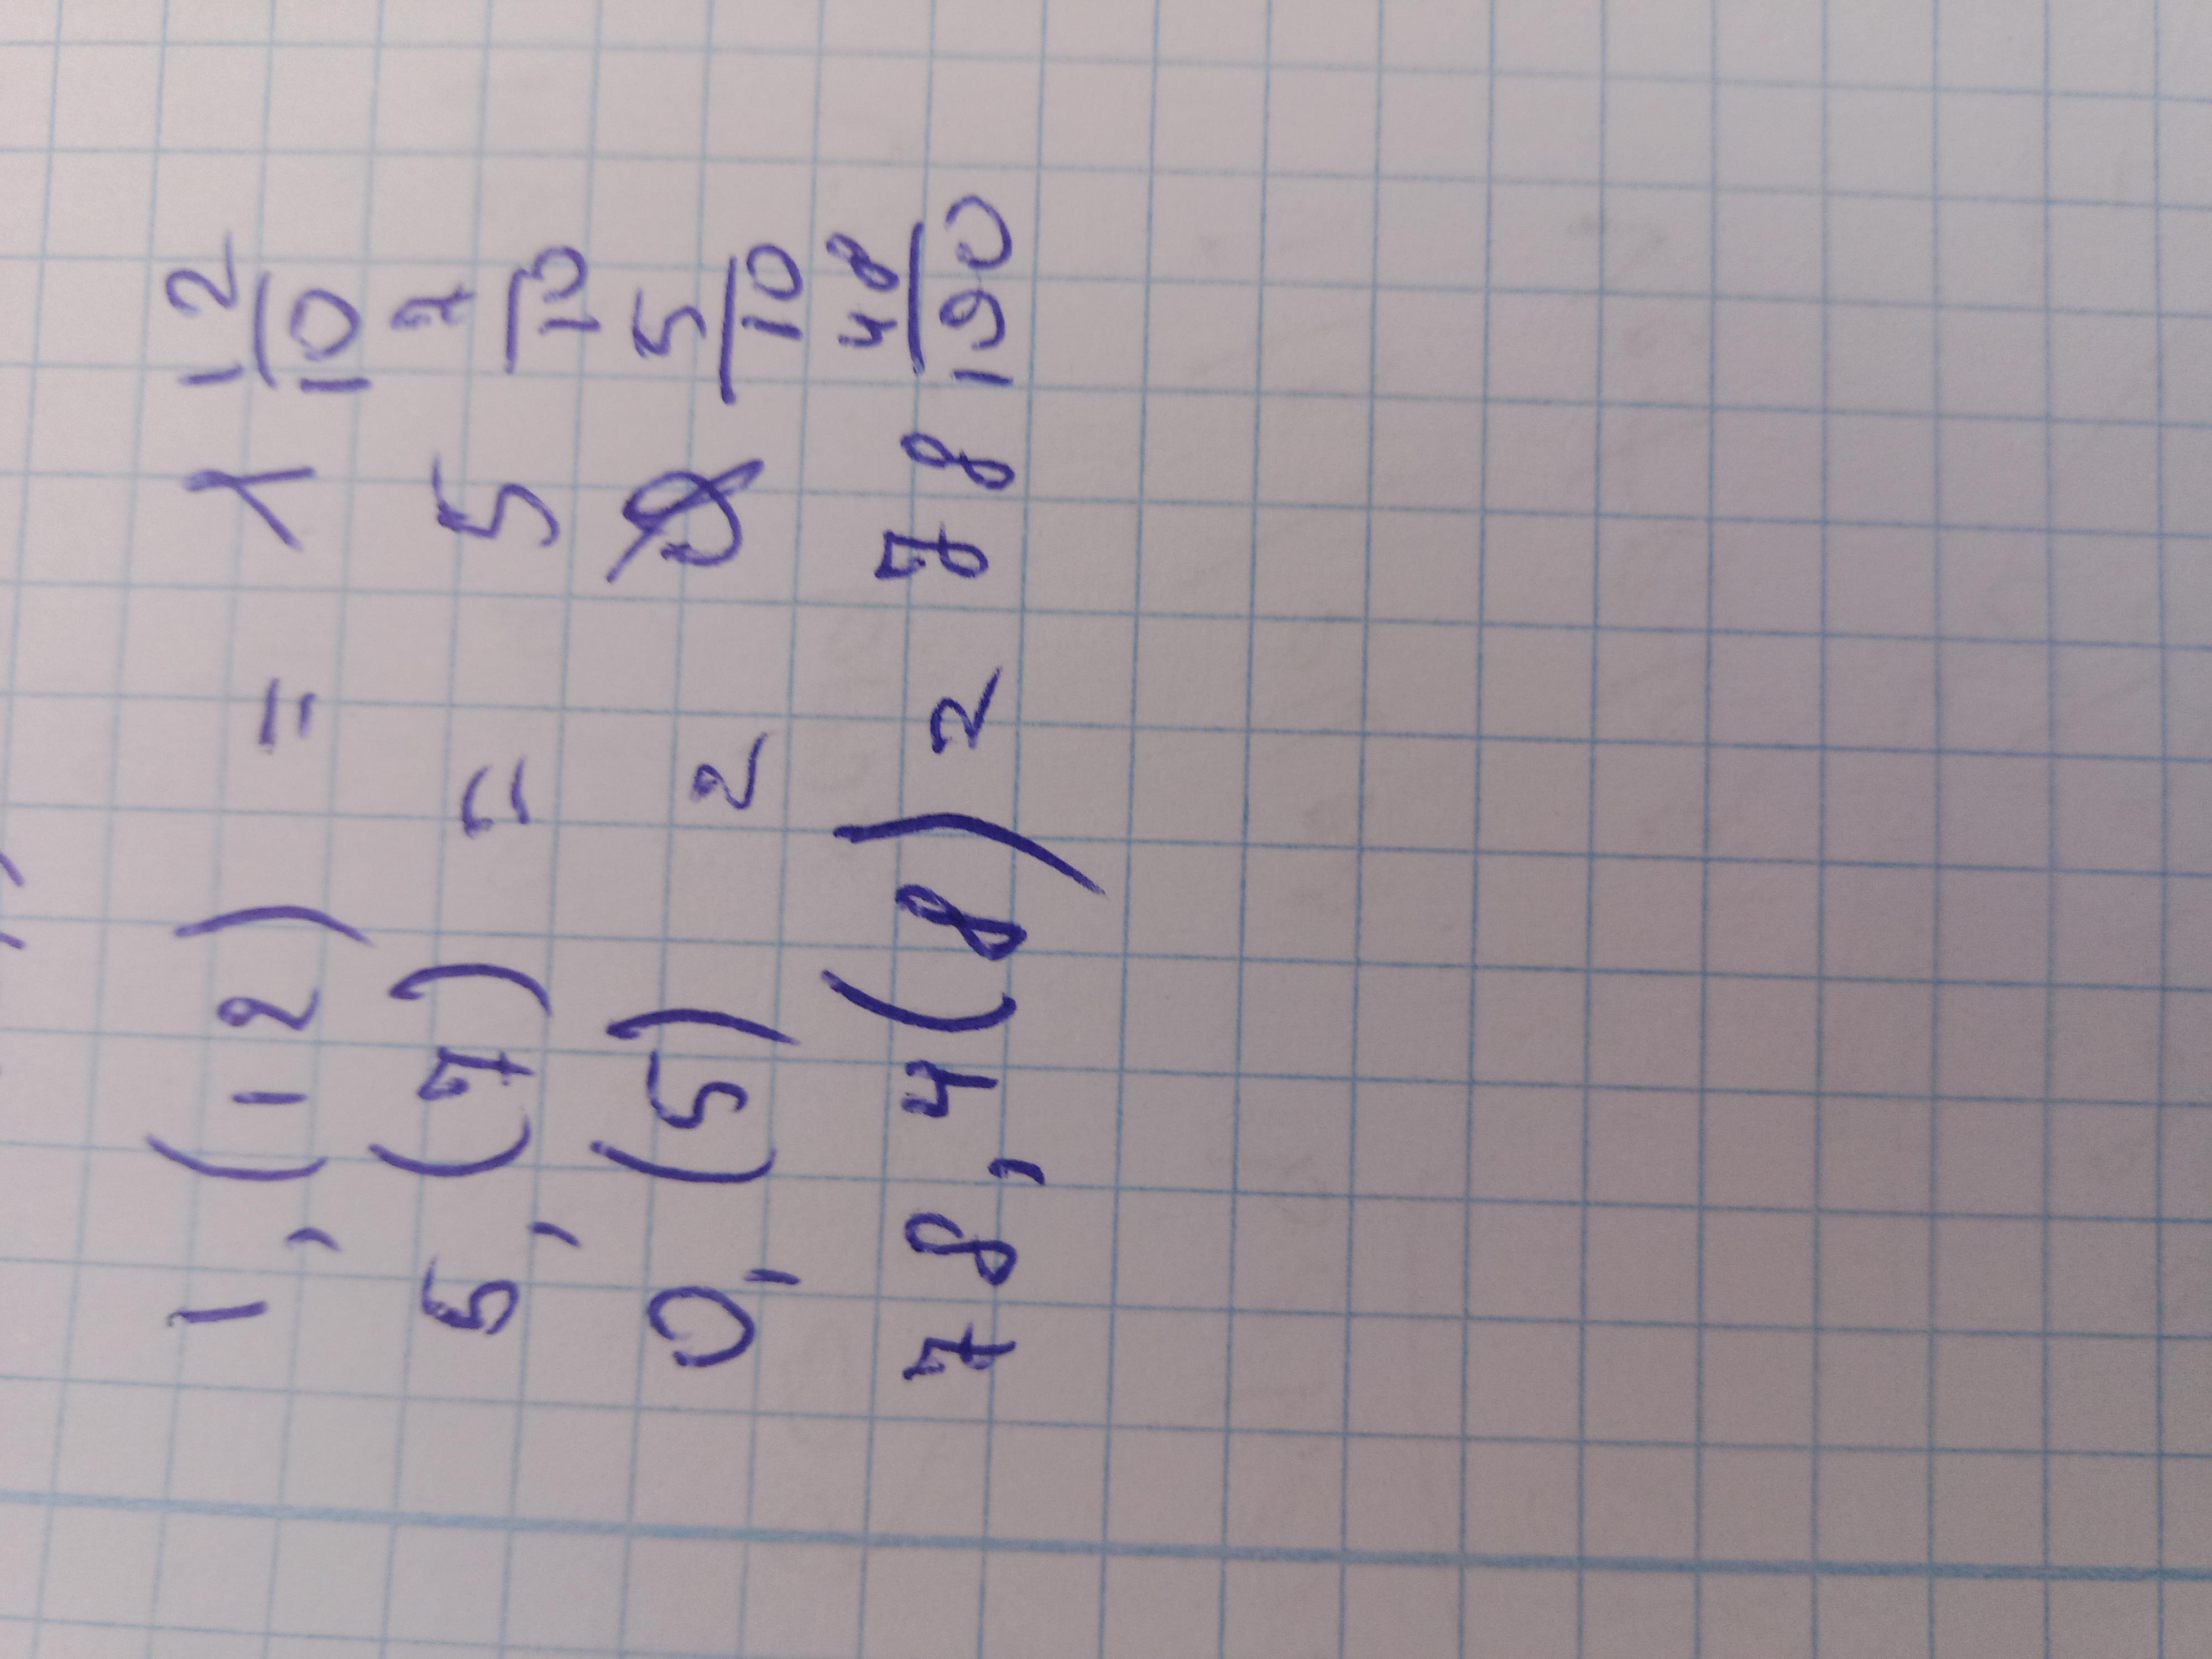 1,(12) = 1 12/10
5,(7) = 5 7/10
0,(5) = 5/10
78,4(8) = 78 48/190